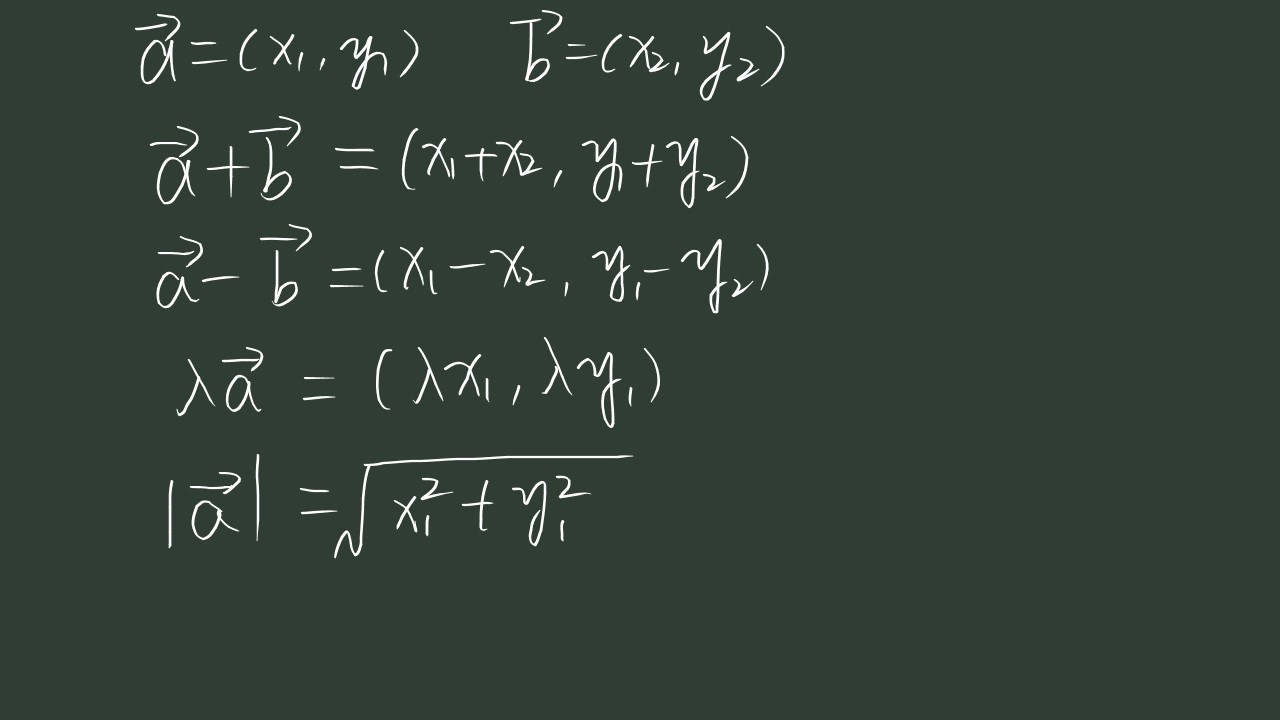 $\vec{a}=(x_1,y_1)$ $\vec{b}=(x_2,y_2)$
$\vec{a}+\vec{b}=(x_1+x_2,y_1+y_2)$
$\vec{a}-\vec{b}=(x_1-x_2,y_1-y_2)$
$\lambda\vec{a}=(\lambda x_1,\lambda y_1)$
$|\vec{a}|=\sqrt{x_1^2+y_1^2}$